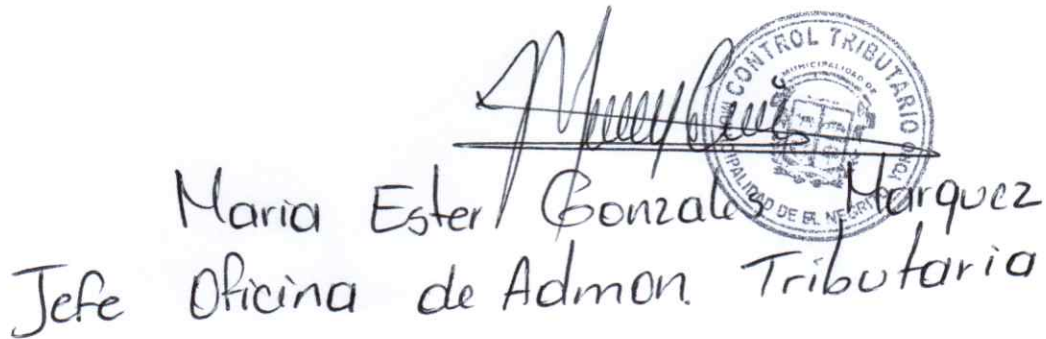 CONTROL TRIBUTARIO
MUNICIPALIDAD DE
MUNICIPALIDAD DE EL NEGRITO YORO
Maria Ester Gonzales Marquez
Jefe Oficina de Admon. Tributaria